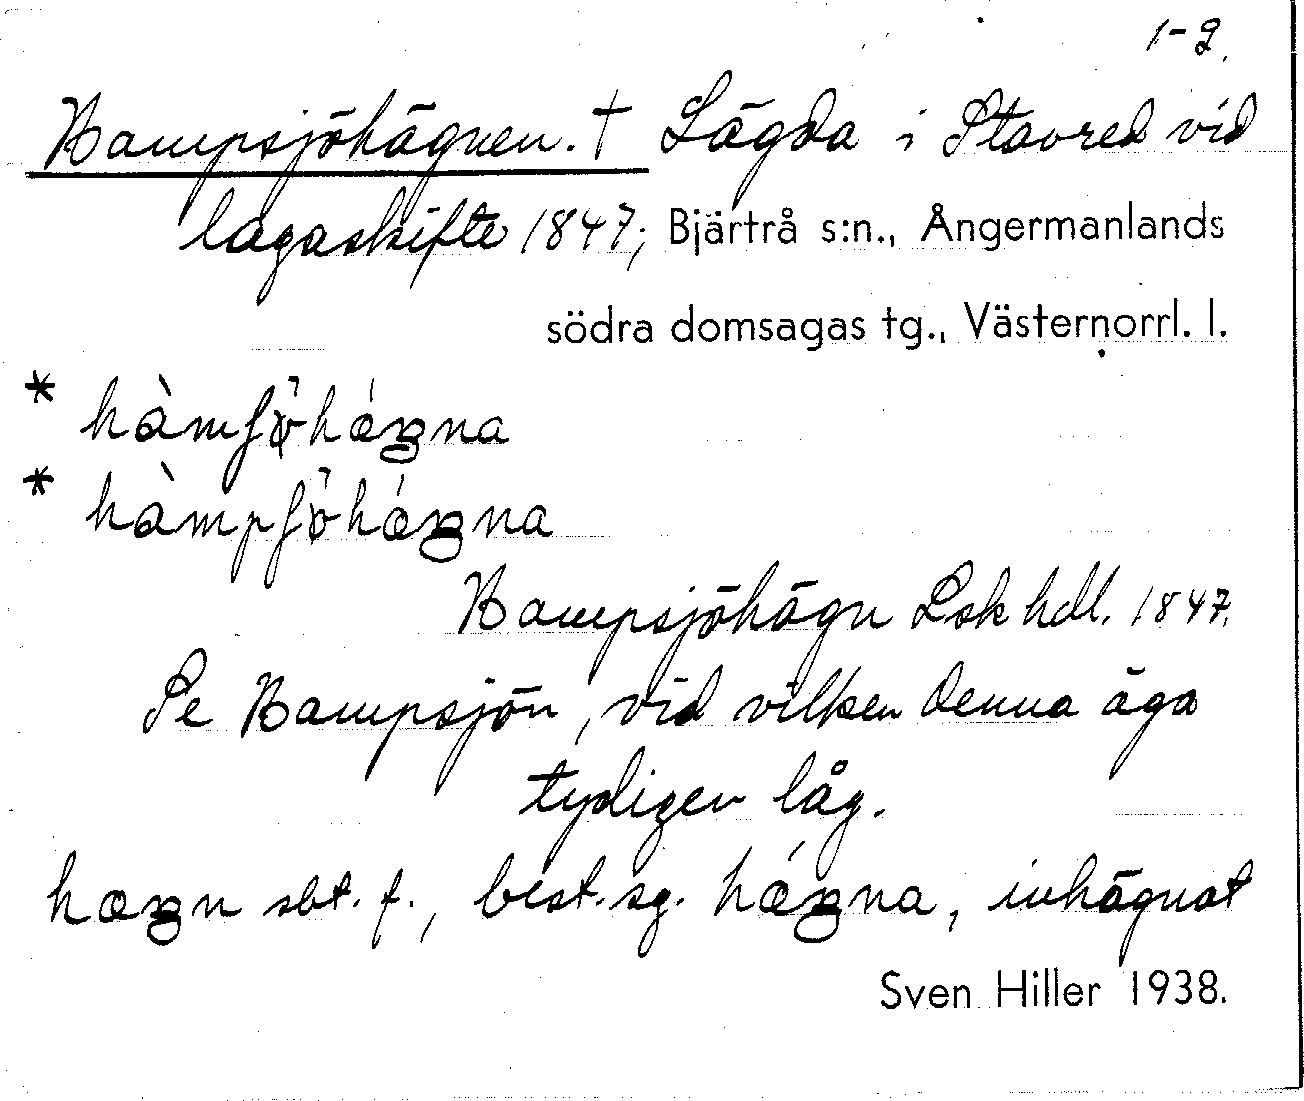 1-2.
Hampsjöhägnen. † Lägda i Stavred vid
lagaskifte 1847; Bjärtrå s:n., Ångermanlands
södra domsagas tg., Västernorrl. l.
* hàmʃöhǽgna
* hàmpʃöhǽgna
Hampsjöhägn Lsk hdl. 1847.
Se Hampsjön, vid vilken denna äga
tydigen låg.
hægn sbt. f., best. sg. hǽgna, inhägnat
Sven Hiller 1938.